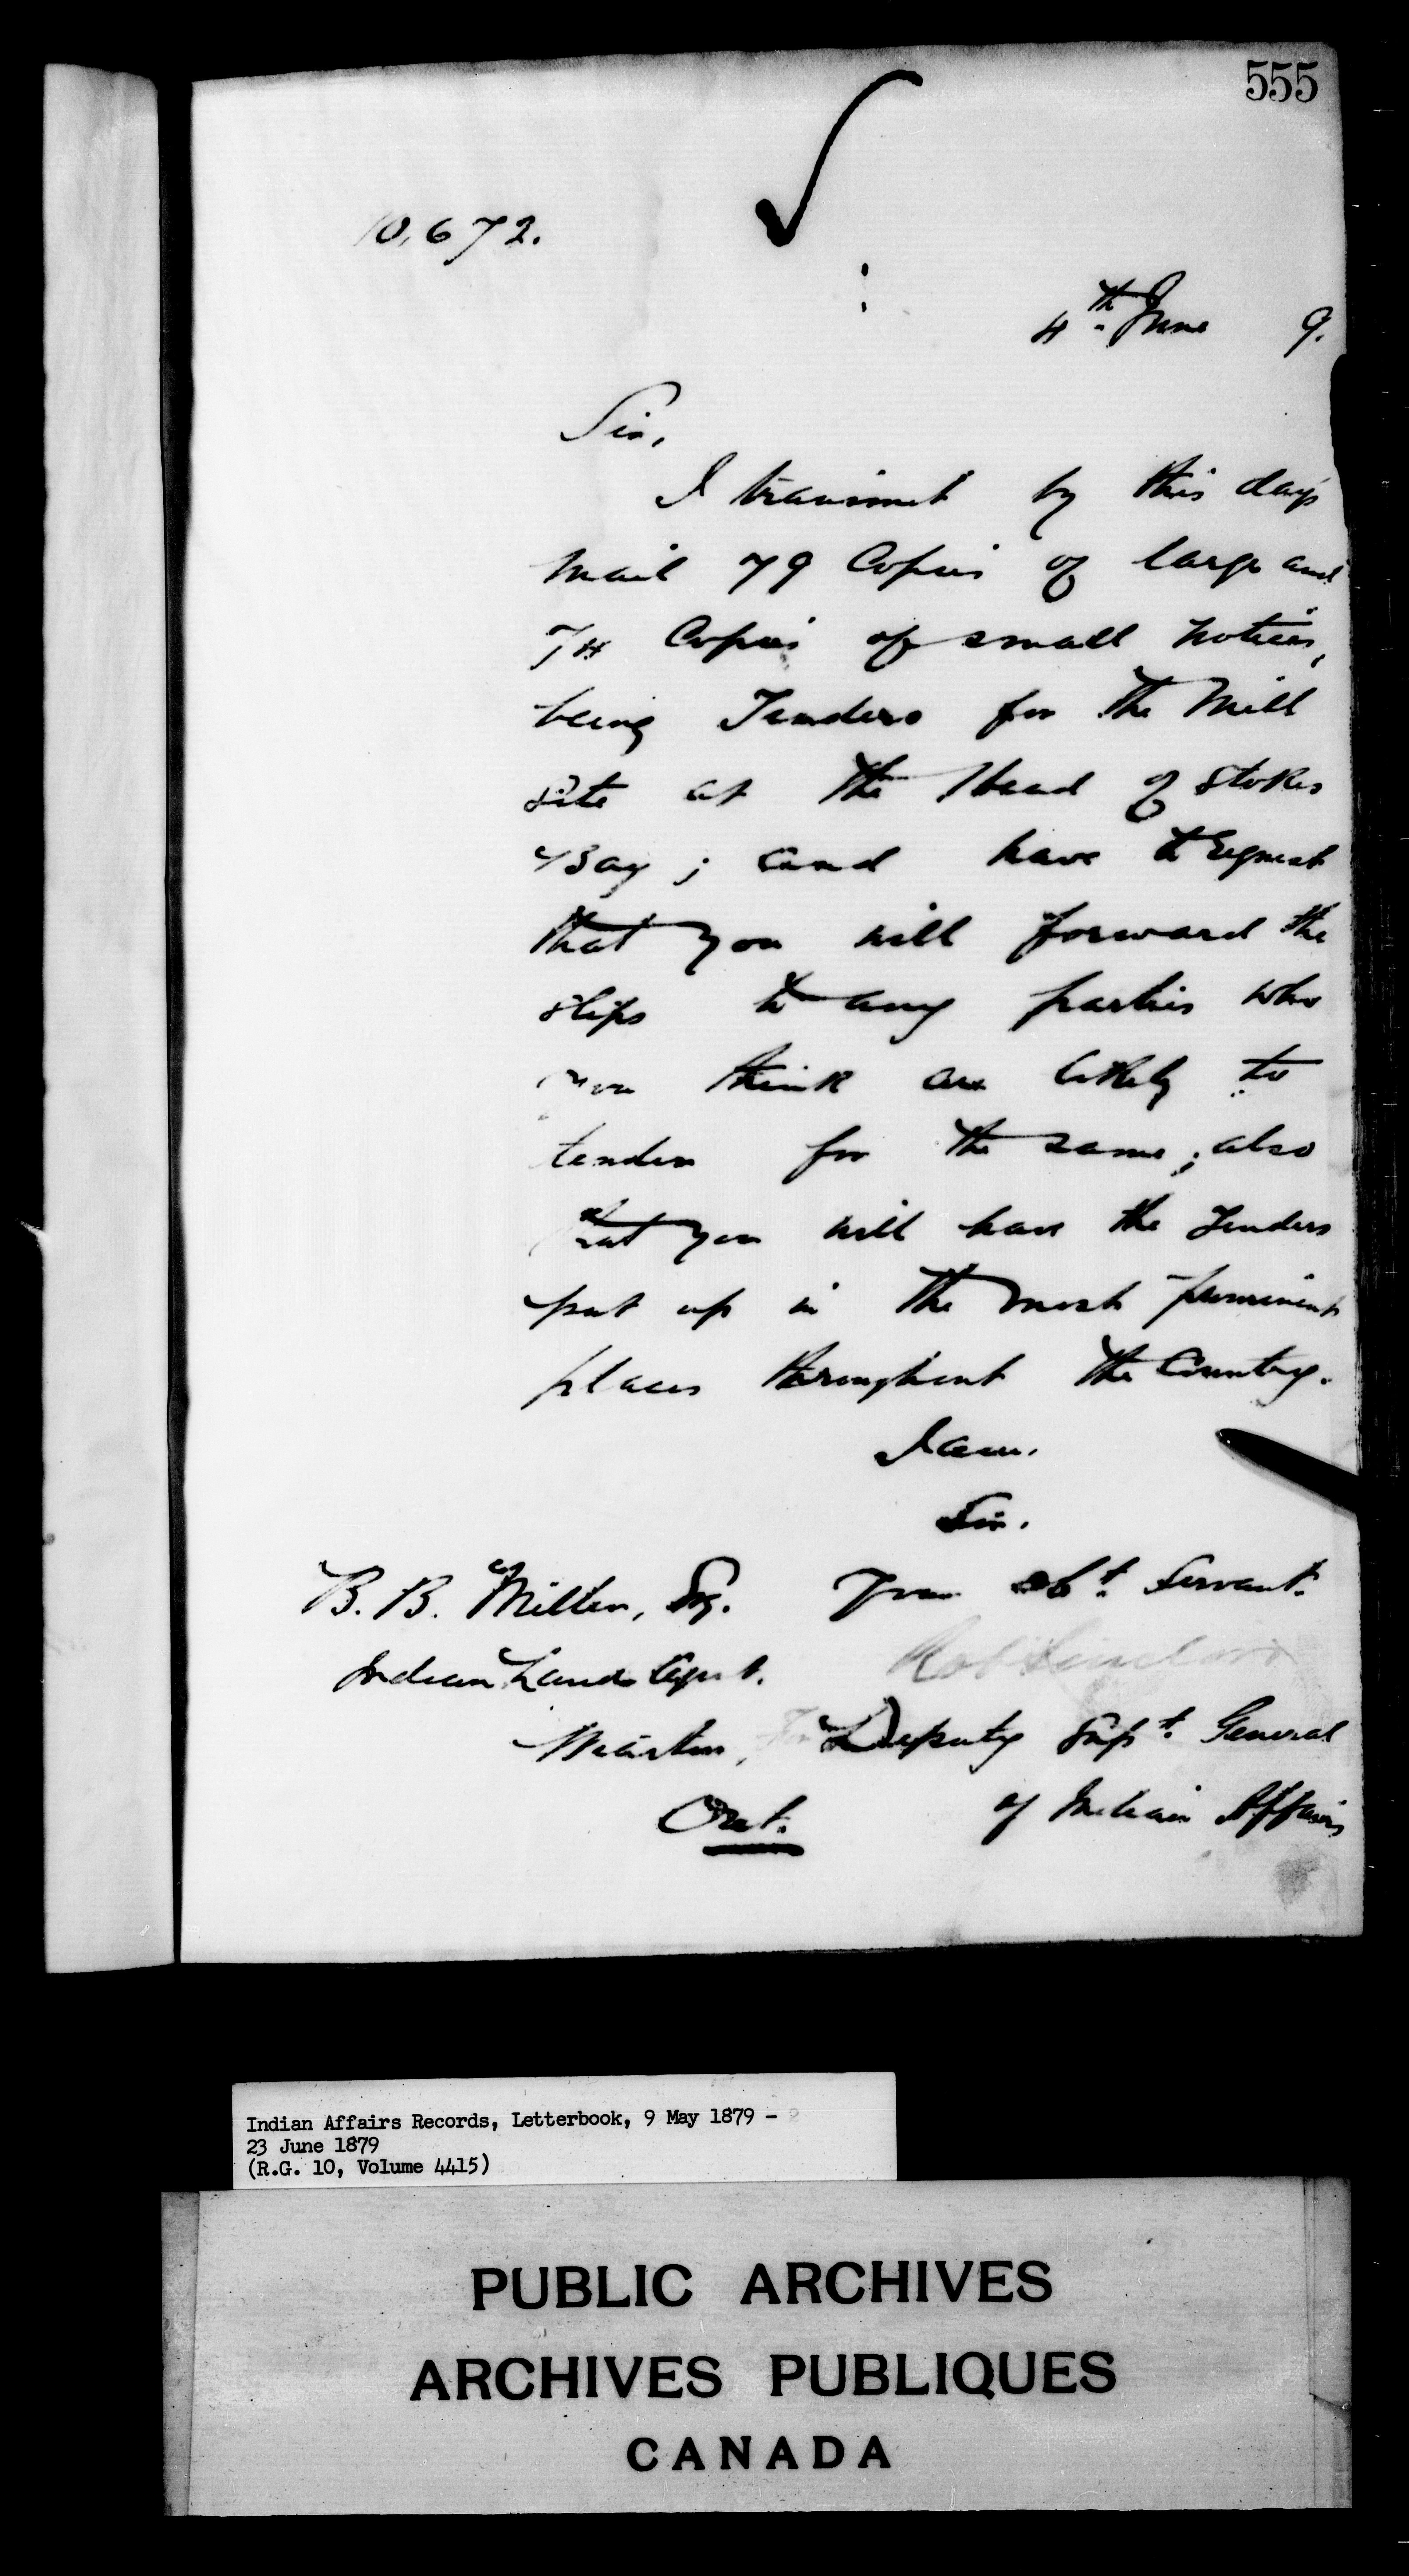 555
10,672.
4th June 9.
Sir,
I transmit by this day's
mail 79 Copies of large and
74 Copies of small notices,
being Tenders for the Mill
site at the head of Stokes
Bay; and have to request
that you will forward the
slips to any parties who
you think are likely to
tender for the same; also
that you will have the Tenders
put up in the most prominent
places throughout the Country.
I am,
Sir.
B. B. Miller, Esq. Your obt. Servant.
Indian Land Agent. Rob Sinclair
Wiarton, For Deputy Supt. General
Ont. of Indian Affairs
Indian Affairs Records, Letterbook, 9 May 1879 -
23 June 1879
(R.G. 10, Volume 4415)
PUBLIC ARCHIVES
ARCHIVES PUBLIQUES
CANADA